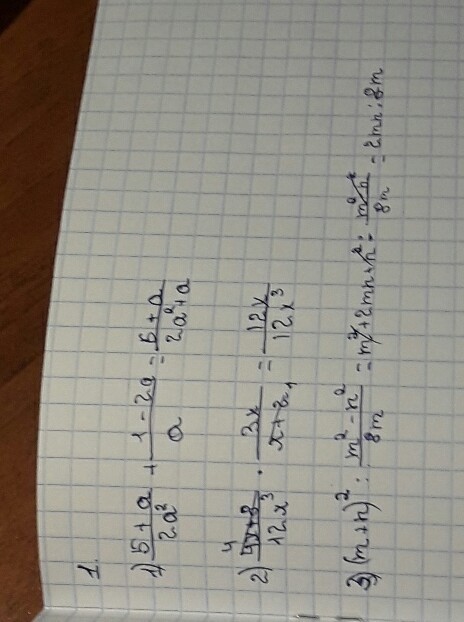 1.
1) (5+a)/(2a²) + (1-2a)/a = (5+a)/(2a²+a)
2) (4x+8)/(12x³) · 3x/(x+2) = 12x/(12x³)
3) (m+n)² : (m²-n²)/(8m) = m²+2mn+n² : (m²-n²)/(8m) = 2mn : 8m